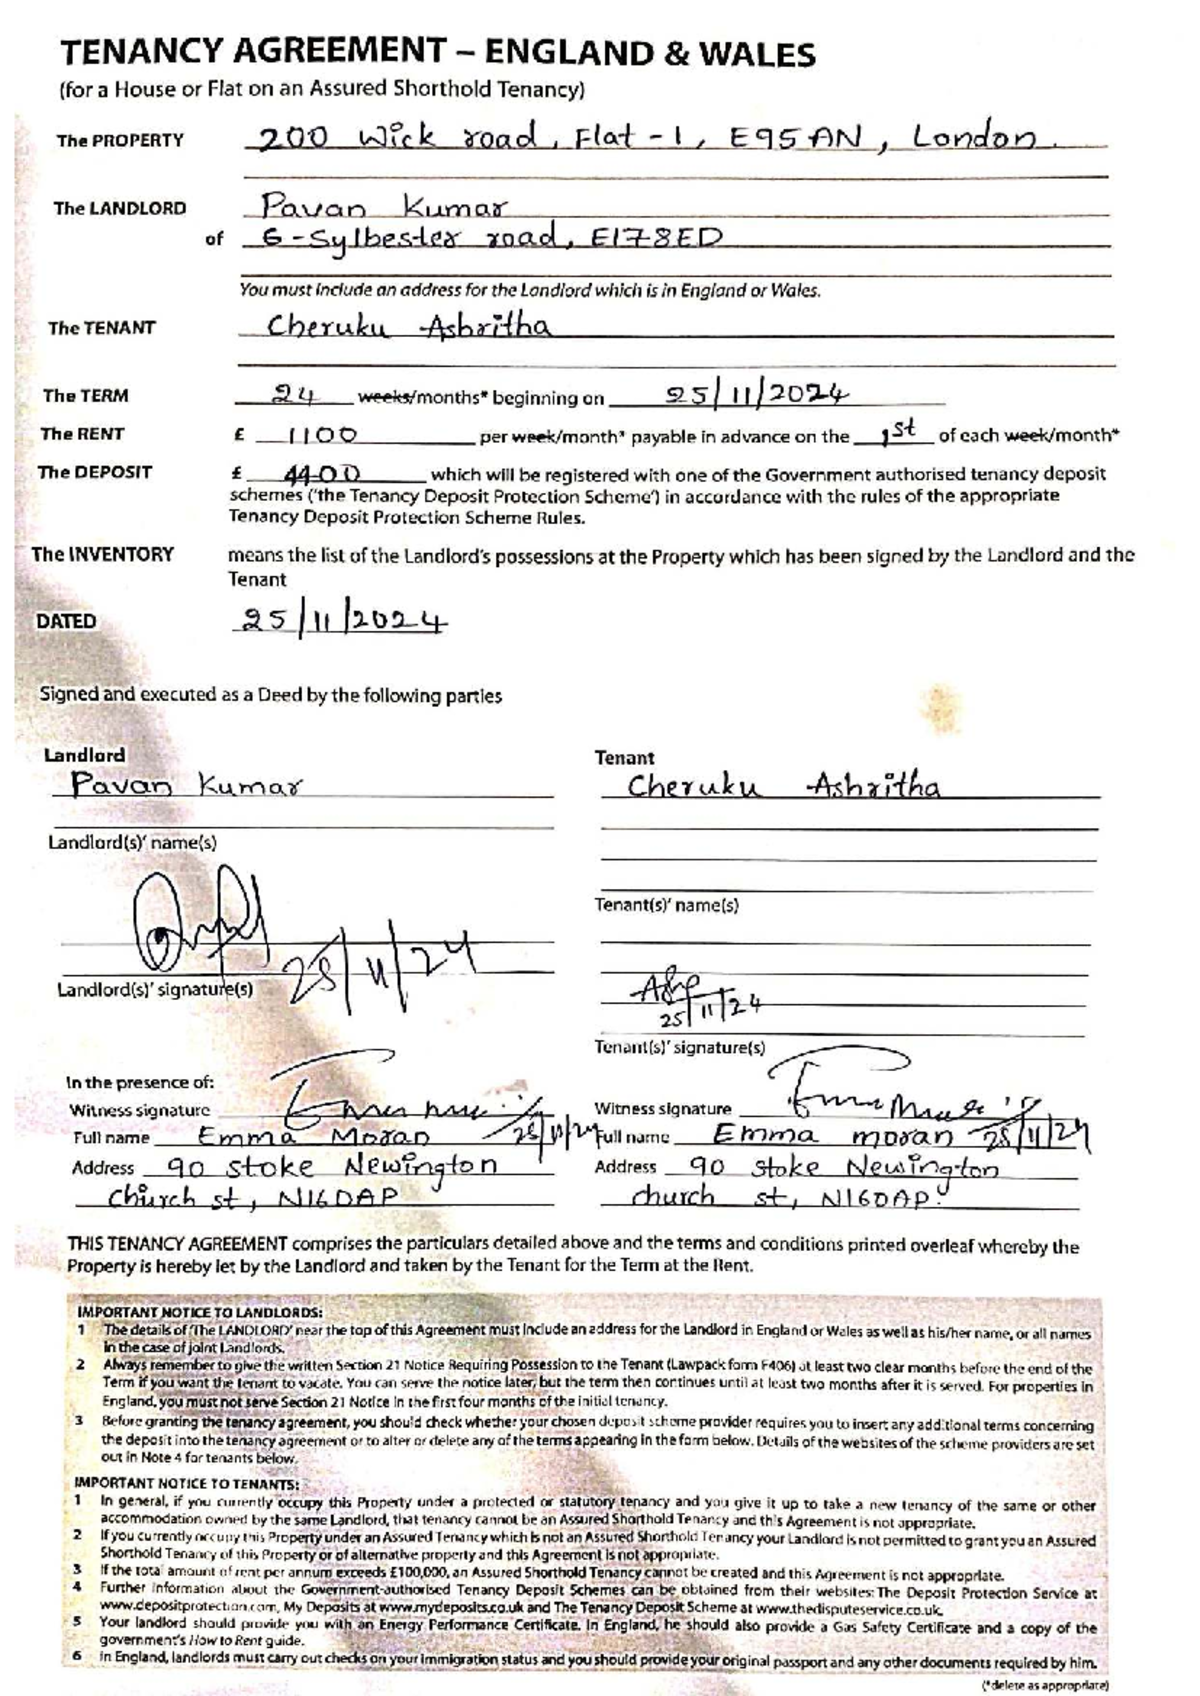 TENANCY AGREEMENT – ENGLAND & WALES
(for a House or Flat on an Assured Shorthold Tenancy)
The PROPERTY 200 Wick road, Flat-1, E95AN, London.
The LANDLORD Pavan Kumar
of 6-Sylbester road, E178ED
You must include an address for the Landlord which is in England or Wales.
The TENANT Cheruku Ashritha
The TERM 24 weeks/months* beginning on 25/11/2024
The RENT £ 1100 per week/month* payable in advance on the 1st of each week/month*
The DEPOSIT £ 4400 which will be registered with one of the Government authorised tenancy deposit
schemes ('the Tenancy Deposit Protection Scheme') in accordance with the rules of the appropriate
Tenancy Deposit Protection Scheme Rules.
The INVENTORY means the list of the Landlord's possessions at the Property which has been signed by the Landlord and the
Tenant
DATED 25/11/2024
Signed and executed as a Deed by the following parties
Landlord Tenant
Pavan Kumar Cheruku Ashritha
Landlord(s)' name(s)
Tenant(s)' name(s)
25/11/24
Landlord(s)' signature(s)
25/11/24
Tenant(s)' signature(s)
In the presence of:
Witness signature Witness signature
Full name Emma Moran 25/11/24 Full name Emma moran 25/11/24
Address 90 stoke Newington Address 90 stoke Newington
church st, N160AP church st, N160AP.
THIS TENANCY AGREEMENT comprises the particulars detailed above and the terms and conditions printed overleaf whereby the
Property is hereby let by the Landlord and taken by the Tenant for the Term at the Rent.
IMPORTANT NOTICE TO LANDLORDS:
1 The details of 'The LANDLORD' near the top of this Agreement must include an address for the Landlord in England or Wales as well as his/her name, or all names
in the case of joint Landlords.
2 Always remember to give the written Section 21 Notice Requiring Possession to the Tenant (Lawpack form F406) at least two clear months before the end of the
Term if you want the tenant to vacate. You can serve the notice later, but the term then continues until at least two months after it is served. For properties in
England, you must not serve Section 21 Notice in the first four months of the initial tenancy.
3 Before granting the tenancy agreement, you should check whether your chosen deposit scheme provider requires you to insert any additional terms concerning
the deposit into the tenancy agreement or to alter or delete any of the terms appearing in the form below. Details of the websites of the scheme providers are set
out in Note 4 for tenants below.
IMPORTANT NOTICE TO TENANTS:
1 In general, if you currently occupy this Property under a protected or statutory tenancy and you give it up to take a new tenancy of the same or other
accommodation owned by the same Landlord, that tenancy cannot be an Assured Shorthold Tenancy and this Agreement is not appropriate.
2 If you currently occupy this Property under an Assured Tenancy which is not an Assured Shorthold Tenancy your Landlord is not permitted to grant you an Assured
Shorthold Tenancy of this Property or of alternative property and this Agreement is not appropriate.
3 If the total amount of rent per annum exceeds £100,000, an Assured Shorthold Tenancy cannot be created and this Agreement is not appropriate.
4 Further information about the Government-authorised Tenancy Deposit Schemes can be obtained from their websites: The Deposit Protection Service at
www.depositprotection.com, My Deposits at www.mydeposits.co.uk and The Tenancy Deposit Scheme at www.thedisputeservice.co.uk.
5 Your landlord should provide you with an Energy Performance Certificate. In England, he should also provide a Gas Safety Certificate and a copy of the
government's How to Rent guide.
6 In England, landlords must carry out checks on your immigration status and you should provide your original passport and any other documents required by him.
(*delete as appropriate)